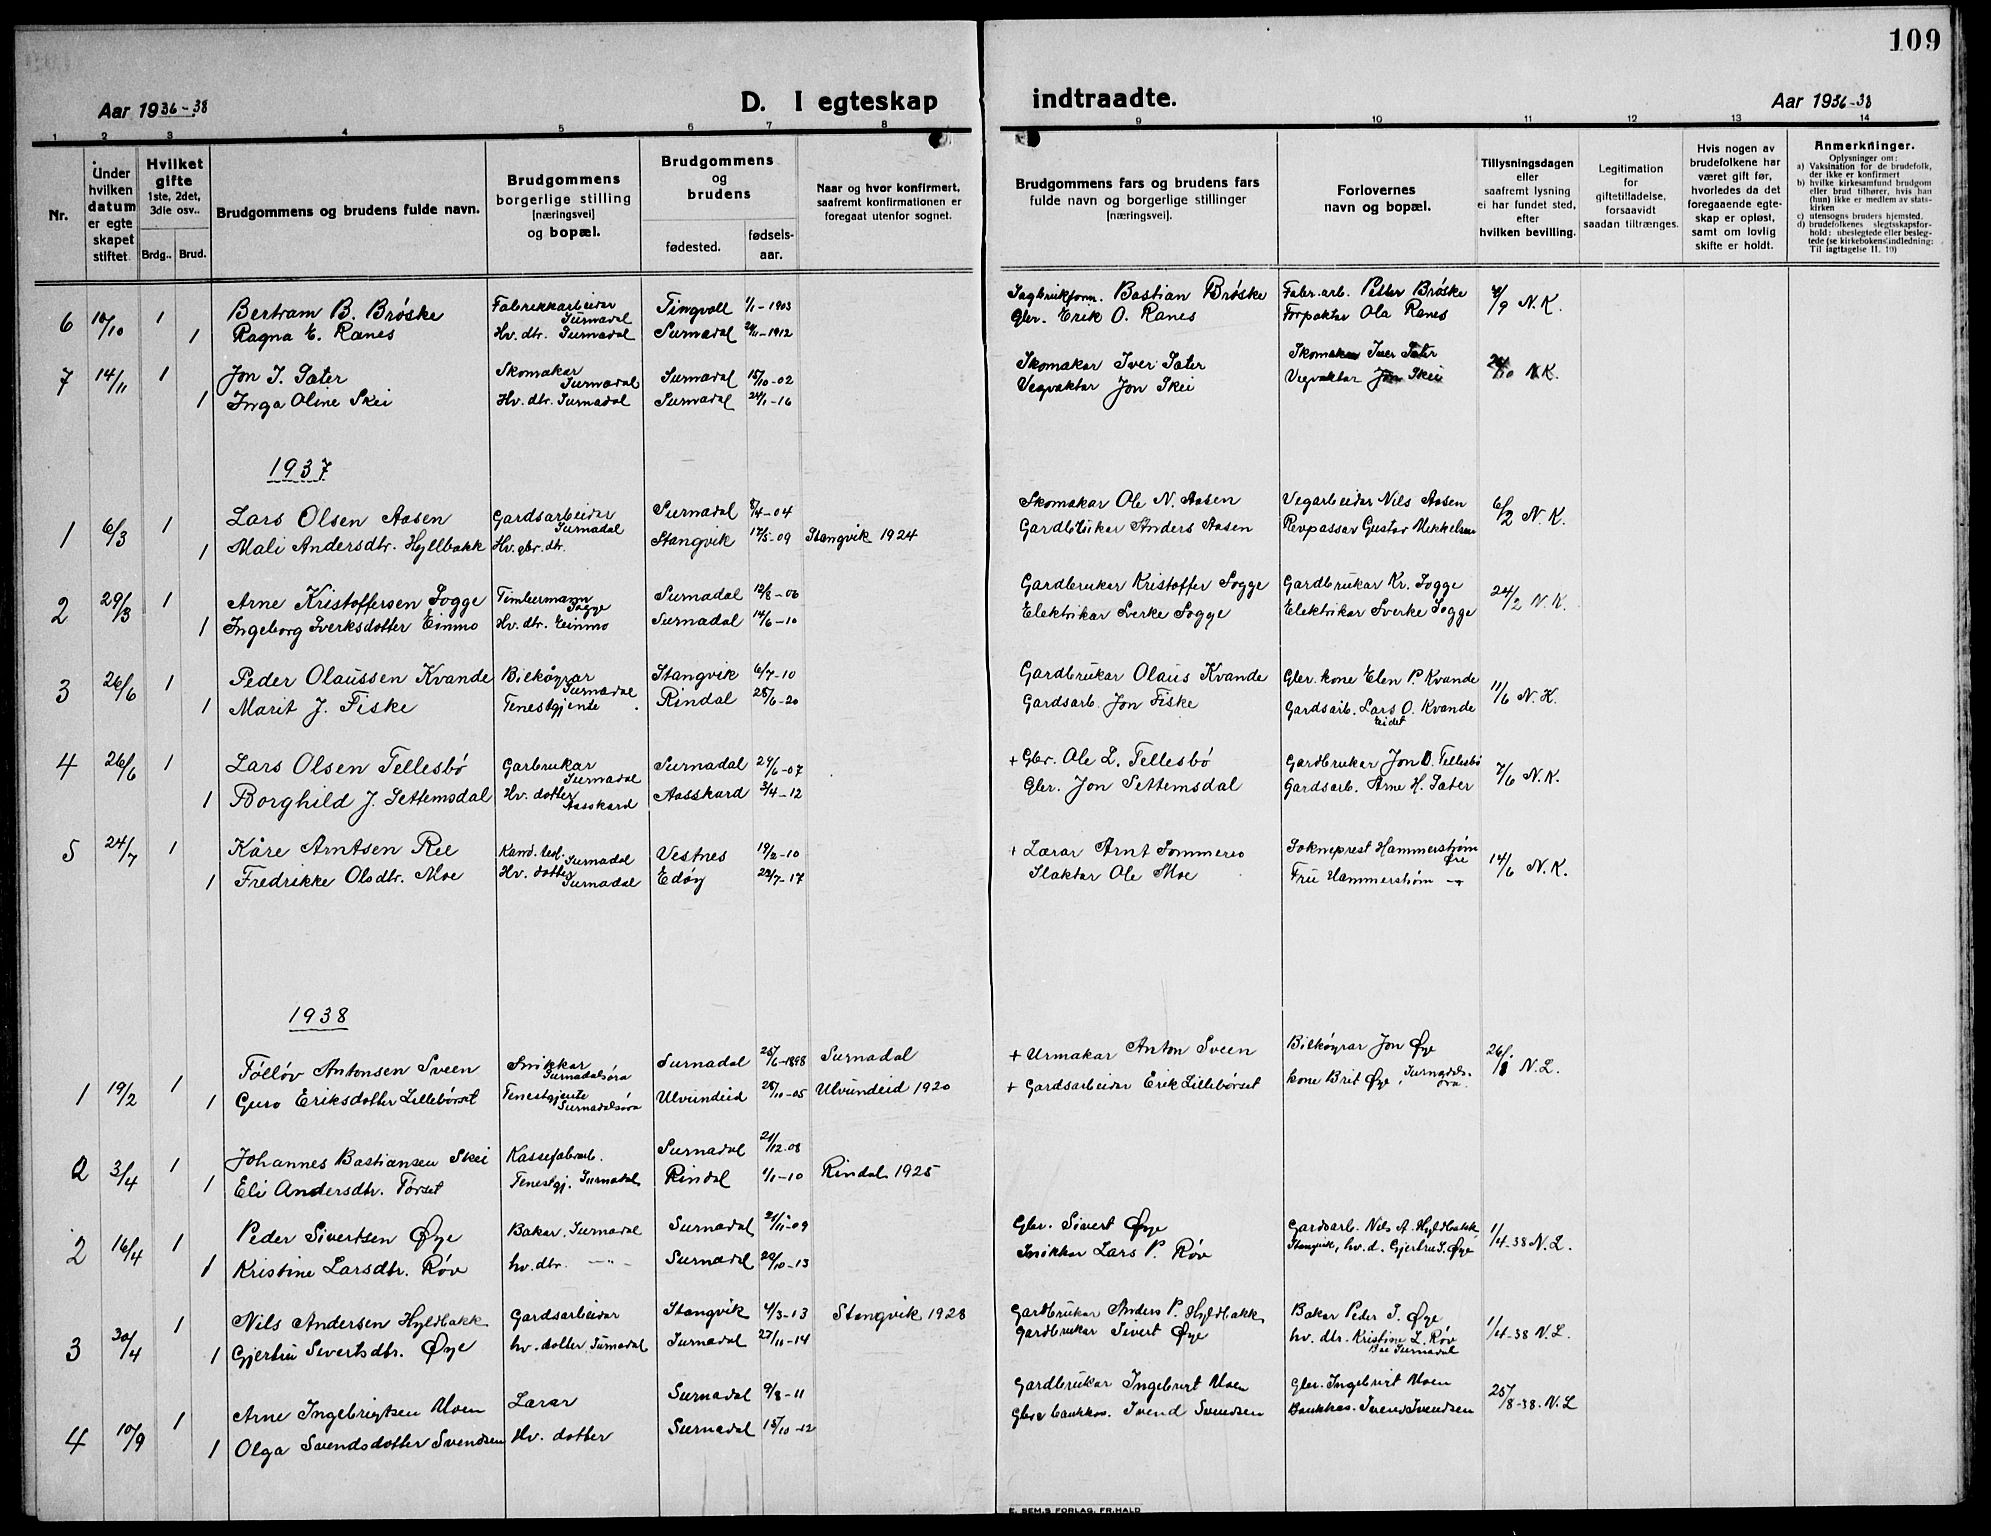 109
Aar 1936-38
D. I egteskap
indtraadte.
Aar 1936-38
1 2 3 4 5 6 7 8 9 10 11 12 13 14
Nr.
Under hvilken datum er egte skapet stiftet
Hvilket gifte 1ste, 2det, 3die osv..
Brdg.. Brud.
Brudgommens og brudens fulde navn.
Brudgommens borgerlige stilling [næringsvei] og bopæl.
Brudgommens og brudens
fødested. fødsels-aar.
Naar og hvor konfirmert, saafremt konfirmationen er foregaat utenfor sognet.
Brudgommens fars og brudens fars fulde navn og borgerlige stillinger [næringsvei].
Forlovernes navn og bopæl.
Tillysningsdagen eller saafremt lysning ei har fundet sted, efter hvilken bevilling.
Legitimation for giftetilladelse, forsaavidt saadan tiltrænges.
Hvis nogen av brudefolkene har været gift før, hvorledes da det foregaaende egte-skap er opløst, samt om lovlig skifte er holdt.
Anmerkninger.
Oplysninger om:
a) Vaksination for de brudefolk, der ikke er konfirmert
b) hvilke kirkesamfund brudgom eller brud tilhører, hvis han (hun) ikke er medlem av stats-kirken
c) utensogns bruders hjemsted.
d) brudefolkenes slegtsskapsfor-hold: ubeslegtede eller besleg-tede (se kirkebokens indledning: Til iagttagelse II. 10)
6 10/10 1 Bertram B. Brøske Fabrikkarbeidar Surnadal Tingvoll 1/1-1903 Sagbrukform. Bastian Brøske Fabr.arb. Petter Brøske /9 N.K.
1 Ragna E. Ranes Hv. dtr. Surnadal Surnadal -1912 Gbr. Erik O. Ranes Forpaktar Ola Ranes
7 14/11 1 Jon I. Sæter Skomakar Surnadal Surnadal 15/10-02 Skomakar Iver Sæter Skomakar Iver Sæter 24/10 N.K.
1 Inga Oline Skei Hv. dtr. Surnadal Surnadal 24/1-16 Vegvaktar Jon Skei Vegvaktar Jon Skei
1937
1 6/3 1 Lars Olsen Aasen Gardsarbeidar Surnadal Surnadal /4-04 Skomakar Ole N. Aasen Vegarbeidar Nils Aasen 6/2 N.K.
1 Mali Andersdtr. Hyllbakk Hv. gbr. dtr. Stangvik 17/5-09 Stangvik 1924 Gardbrukar Anders Aasen Revpassar Gustav Mikkelsen
2 29/3 1 Arne Kristoffersen Sogge Timbermann Sogge Surnadal 12/8-06 Gardbrukar Kristoffer Sogge Gardbrukar Kr. Sogge 24/2 N.K.
1 Ingeborg Sverksdotter Einmo Hv. dtr. Einmo Surnadal 14/6-10 Elektrikar Sverke Sogge Elektrikar Sverke Sogge
3 26/6 1 Peder Olaussen Kvande Bilkøyrar Surnadal Stangvik 6/7-10 Gardbrukar Olaus Kvande Gbr. kone Elen P. Kvande 11/6 N.K.
1 Marit J. Fiske Tenestgjente Rindal 28/6-20 Gardsarb. Jon Fiske Gardsarb. Lars O. Kvande
Eidet
4 26/6 1 Lars Olsen Tellesbø Garbrukar Surnadal Surnadal 29/6-07 + Gbr. Ole L. Tellesbø Gardbrukar Jon O. Tellesbø 7/6 N.K.
1 Borghild J. Settemsdal Hv. dotter Aasskard Aasskard 3/4-12 Gbr. Jon Settemsdal Gardsarb. Arne H. Sæter
5 24/7 1 Kåre Arntsen Ree Kand. teol. Surnadal Vestnes 19/2-10 + Lærar Arnt Sommerro Sokneprest Hammerstrøm Øre 14/6 N.K.
1 Fredrikke Olsdtr. Moe Hv. dotter Surnadal Edøy 22/7-17 Slaktar Ole Moe Fru Hammerstrøm
1938
1 19/2 1 Tølløv Antonsen Sveen Snikkar Surnadalsøra Surnadal 25/6-1898 Surnadal + Urmakar Anton Sveen Bilkøyrar Jon Øye 26/1 N.L.
1 Guro Eriksdotter Lillebørset Tenestgjente Surnadalsøra Ulvundeid 28/11-05 Ulvundeid 1920 + Gardsarbeidar Erik Lillebørset kone Brit Øye, Surnadals-øra
2 3/4 1 Johannes Bastiansen Skei Kassefabrarb. Surnadal 21/12-08
1 Eli Andersdtr. Tørset Tenestgj. Surnadal Rindal 1/1-10 Rindal 1925
2 16/4 1 Peder Sivertsen Øye Bakar, Surnadal Surnadal 21/11-09 Gbr. Sivert Øye Gardsarb. Nils A. Hyldbakk, 1/4-38 N.L.
1 Kristine Larsdtr. Røv hv. dtr. —"— Surnadal 22/10-13 Snikkar Lars P. Røv Stangvik, hv. d. Gjertru S. Øye
3 30/4 1 Nils Andersen Hyldbakk Gardsarbeidar Stangvik 4/3-13 Stangvik 1928 Gardbrukar Anders P. Hyldbakk Bakar Peder S. Øye 1/4-38 N.L.
1 Gjertru Sivertsdtr. Øye hv. dotter, Surnadal Surnadal 27/11-14 Gardbrukar Sivert Øye hv. dtr. Kristine L. Røv
Surnadal
4 10/9 1 Arne Ingebrigtsen Moen Lærar Surnadal 9/8-11 Gardbrukar Ingebrigt Moen Gbr. Ingebrigt Moen 25/8-38. N.L
1 Olga Svendsdotter Svendsen Hv. dotter Surnadal 15/10-12 Gbr. bankkas. Svend Svendsen Bankkas. Svend Svendsen
E. SEM.S FORLAG, FR.HALD